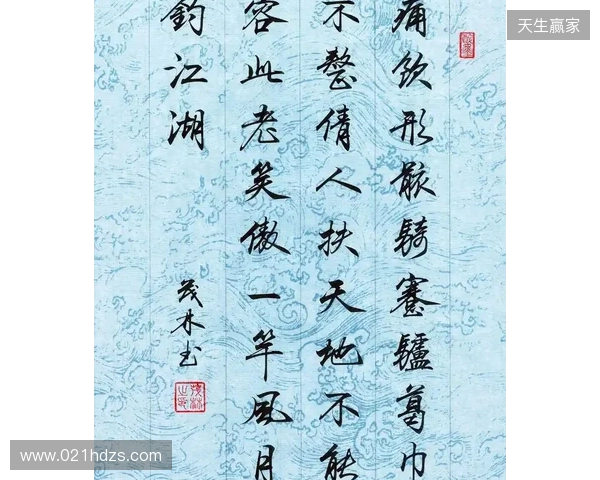 痛饮形骸騎蹇驢葛巾
不整倩人扶天地不能
容此老笑傲一竿風月
釣江湖
茂林书
天生赢家
www.021hdzs.com